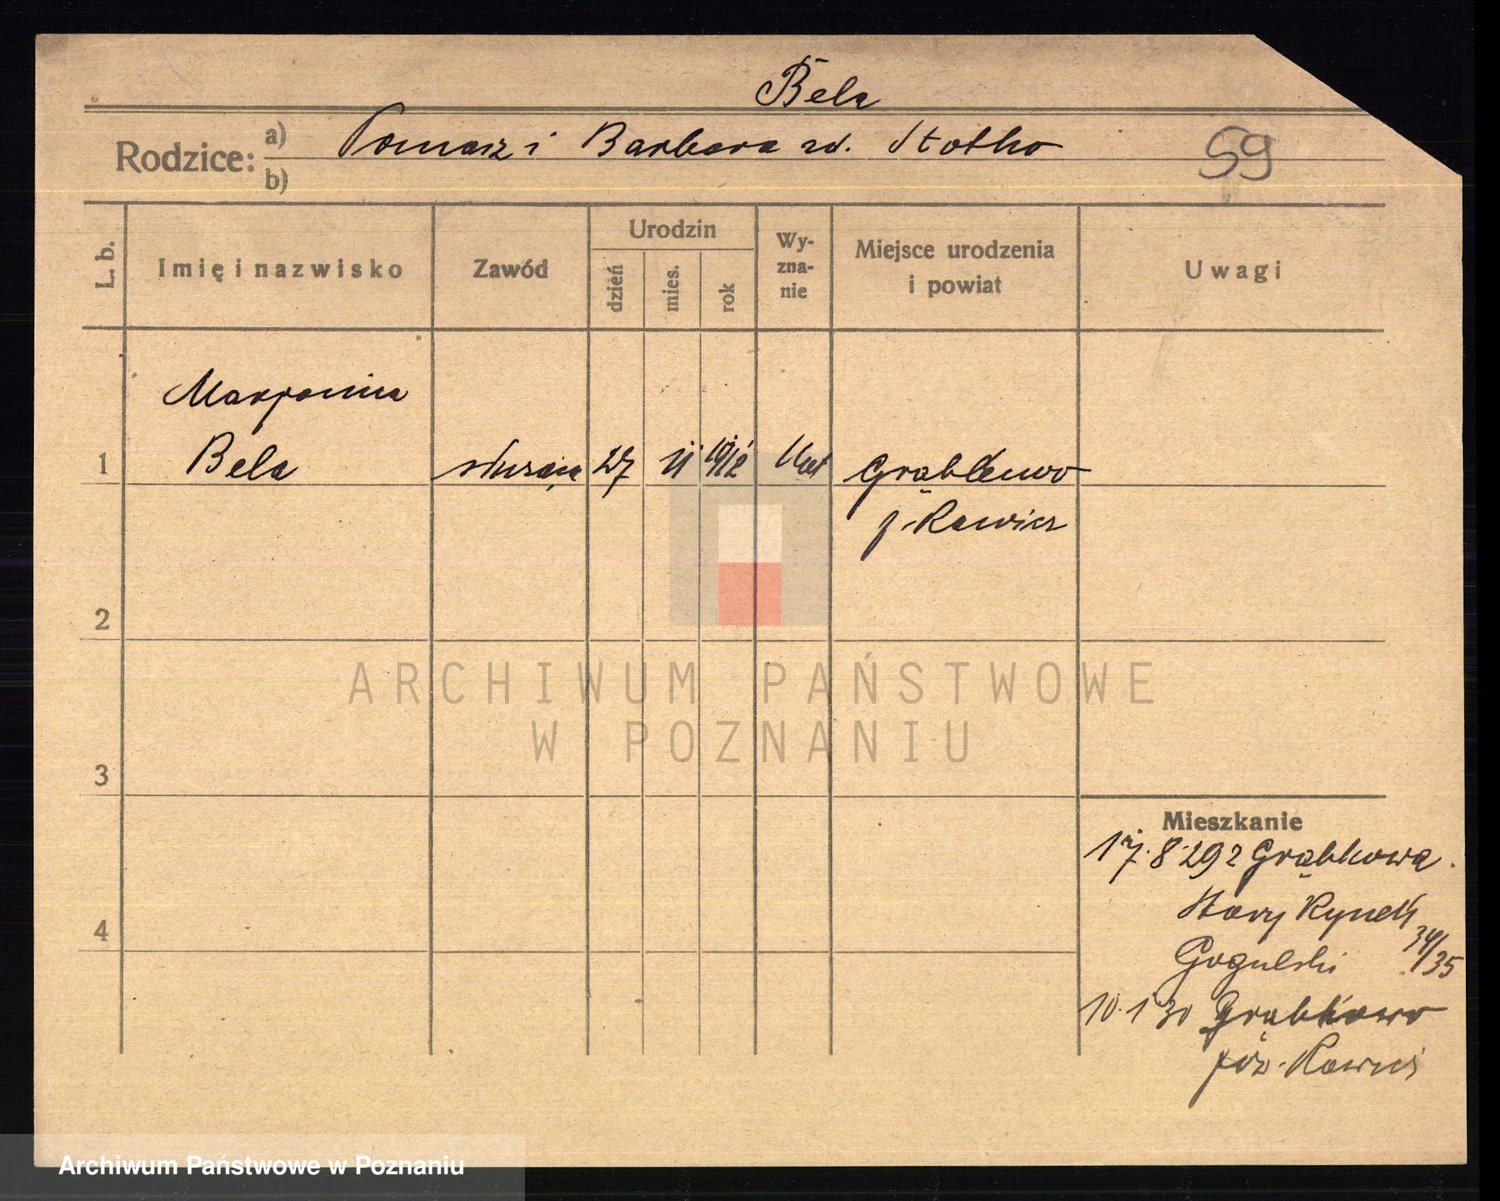 Bela
Rodzice: a) Tomasz i Barbara zd. Stotko
b)
59
L. b.
Imię i nazwisko
Zawód
Urodzin
dzień
mies.
rok
Wy-
zna-
nie
Miejsce urodzenia
i powiat
Uwagi
Marjanna
1 Bela służąca 27 11 1912 Kat Grąbkowo
p. Rawicz
2
ARCHIWUM PAŃSTWOWE
W POZNANIU
3
Mieszkanie
17.8.29 z Grąbkowa.
Stary Rynek
4
Gogulski 34/35
10.1 30 Grąbkowo
pow. Rawicz
Archiwum Państwowe w Poznaniu